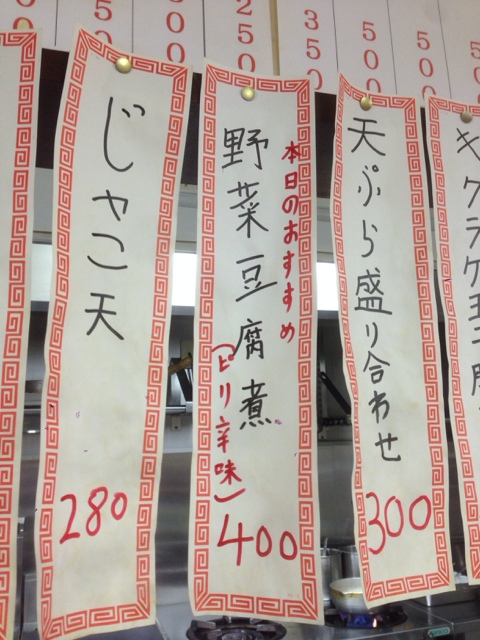 じゃこ天
280
本日のおすすめ
野菜豆腐煮
(ピリ辛味)
400
天ぷら盛り合わせ
300
キクラゲ玉子
500
500
250
350
500
500